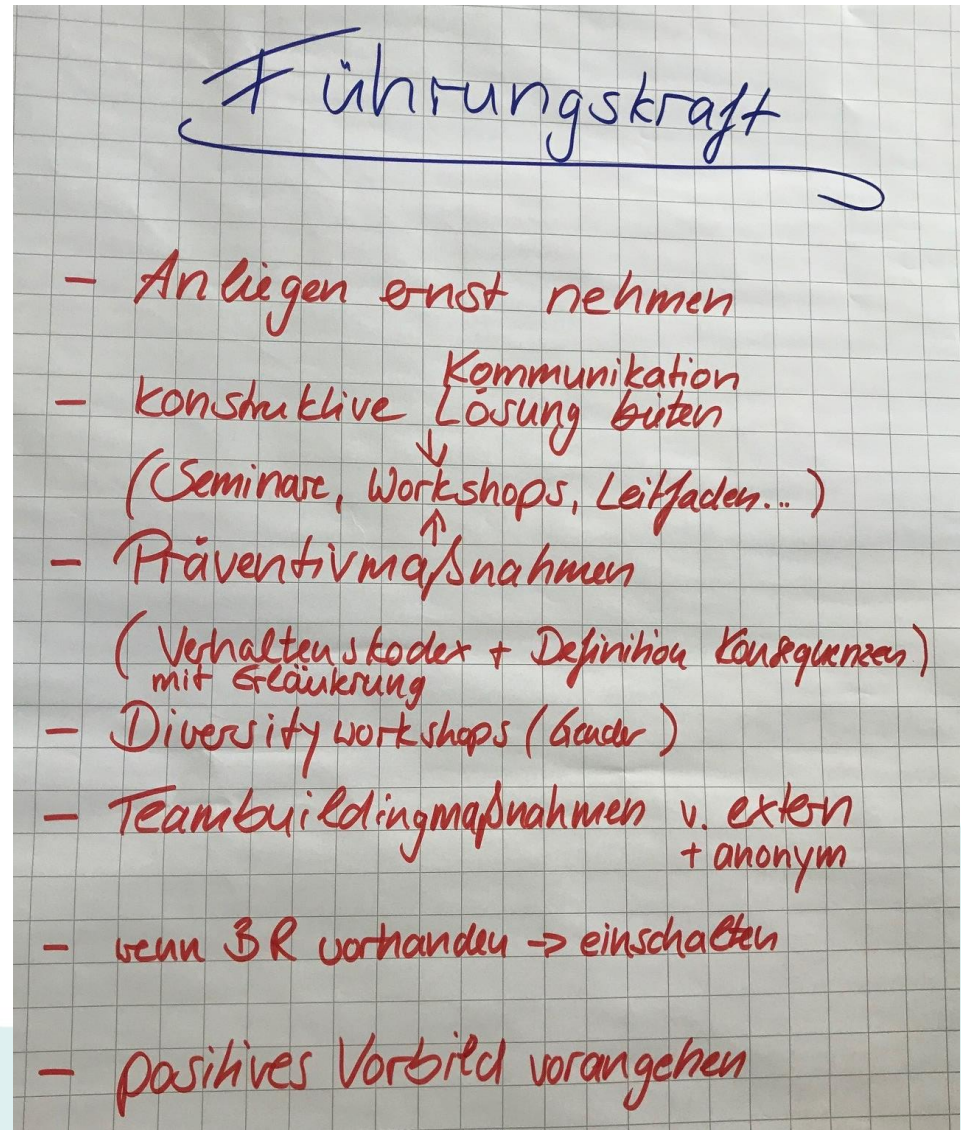 Führungskraft
- Anliegen ernst nehmen
Kommunikation
- konstruktive Lösung bieten
↓
(Seminare, Workshops, Leitfaden...)
↑
- Präventivmaßnahmen
(Verhaltenskodex + Definition Konsequenzen)
mit Erläuterung
- Diversity workshops (Gender)
- Teambuildingmaßnahmen v. extern
+ anonym
- wenn BR vorhanden -> einschalten
- positives Vorbild vorangehen